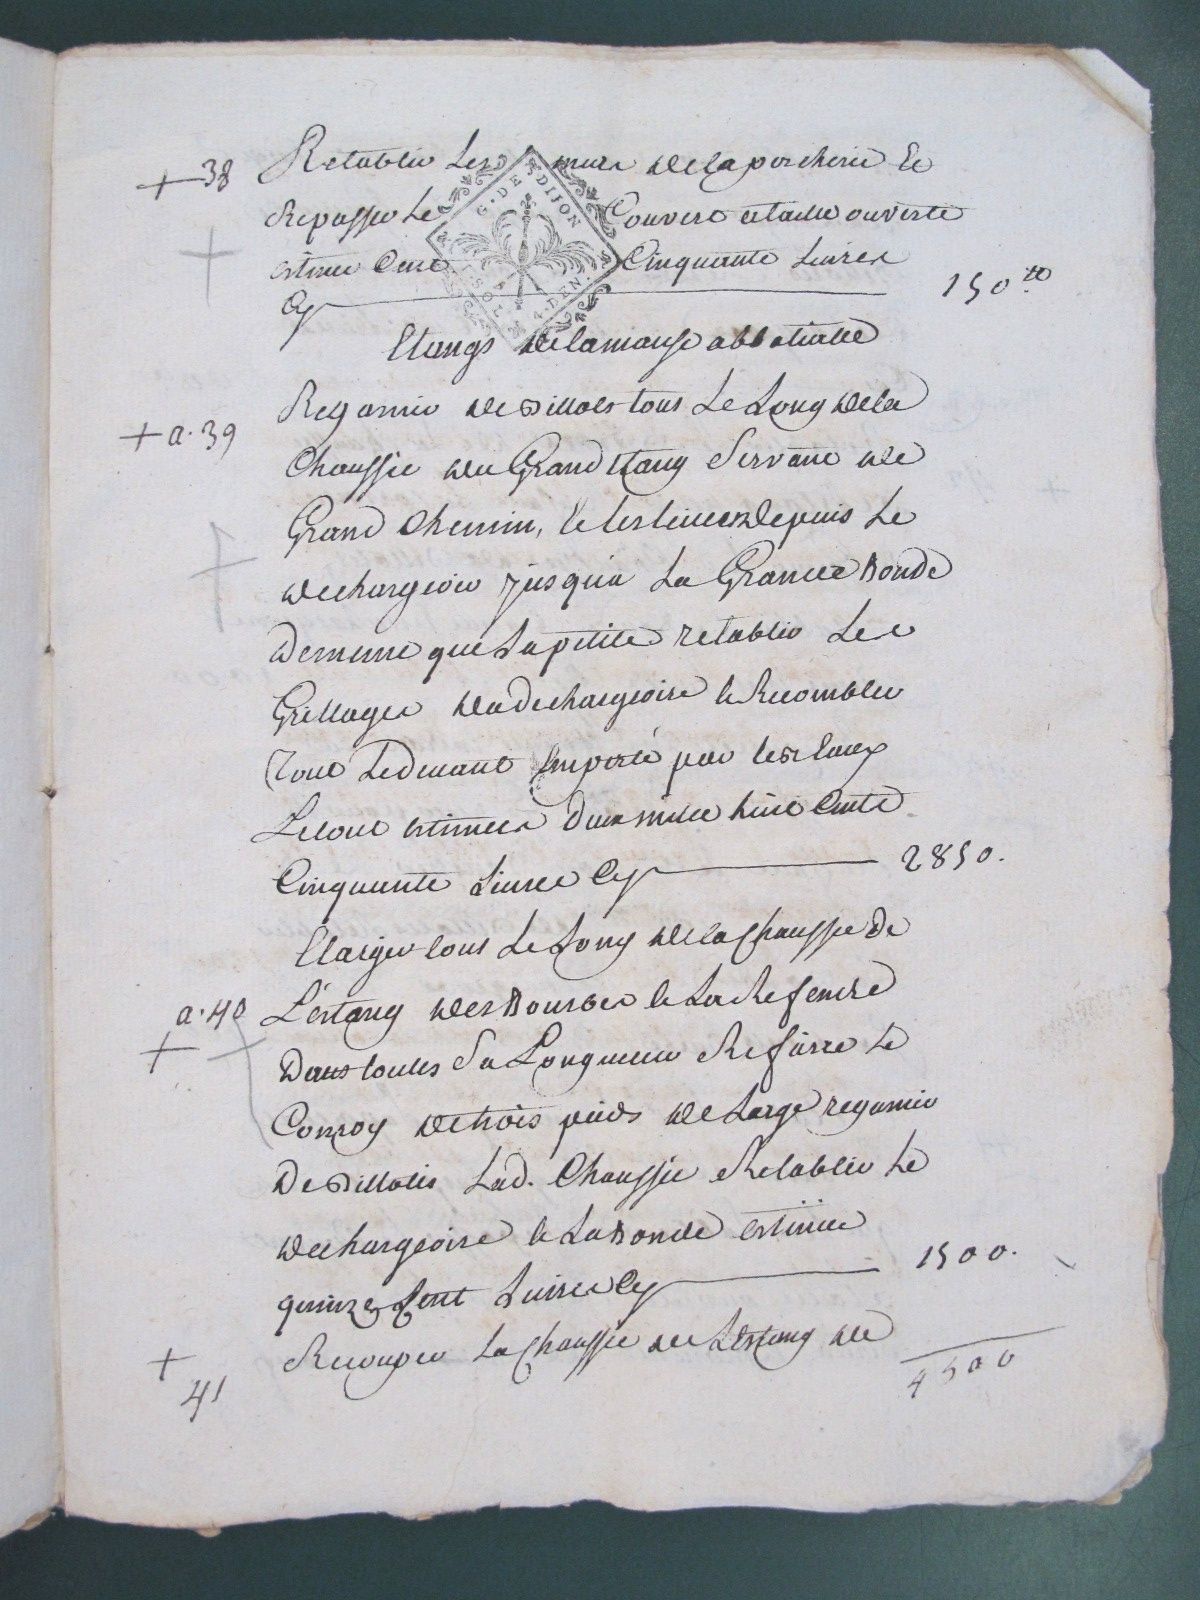 + 38 Retablir Les murs de la porcherie Et
Repasser Le Couvert a taille ouverte
estimée Cent Cinquante Livres
Cy 150 ₶
G. DE DIJON
1 SOL 4 DEN.
Etangs de la manse abbatialle
+ a. 39 Regarnir de Dillots tous Le Long de la
Chaussée du Grand Etang Servant de
Grand Chemin, et les lever depuis Le
dechargeoir jusqu'a La Grande Bonde
de meme que La petite retablir Les
Grillages du dechargeoire et Recombler
Tout Le devant Emporté par les Eaux
Le tout estimés deux mille huit Cents
Cinquante Livres Cy 2850.
Elargir tous Le Long de la Chaussée De
a. 40 L'estang des Bourbes et La Refendre
+ Dans toutes Sa Longueur Refaire Le
Conroy de trois pieds de Large regarnir
De Dillotis Lad. Chaussée Retablir Le
dechargeoire et La Bonde estimée
quinze Cent Livres Cy 1500.
+ 41 Recouper La Chaussée de L'Estang de
4500